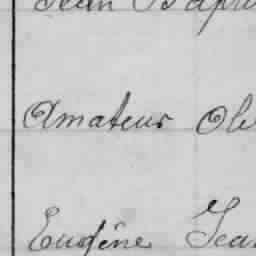 Jean Bap
Amateur Ol
Eugéne Jea